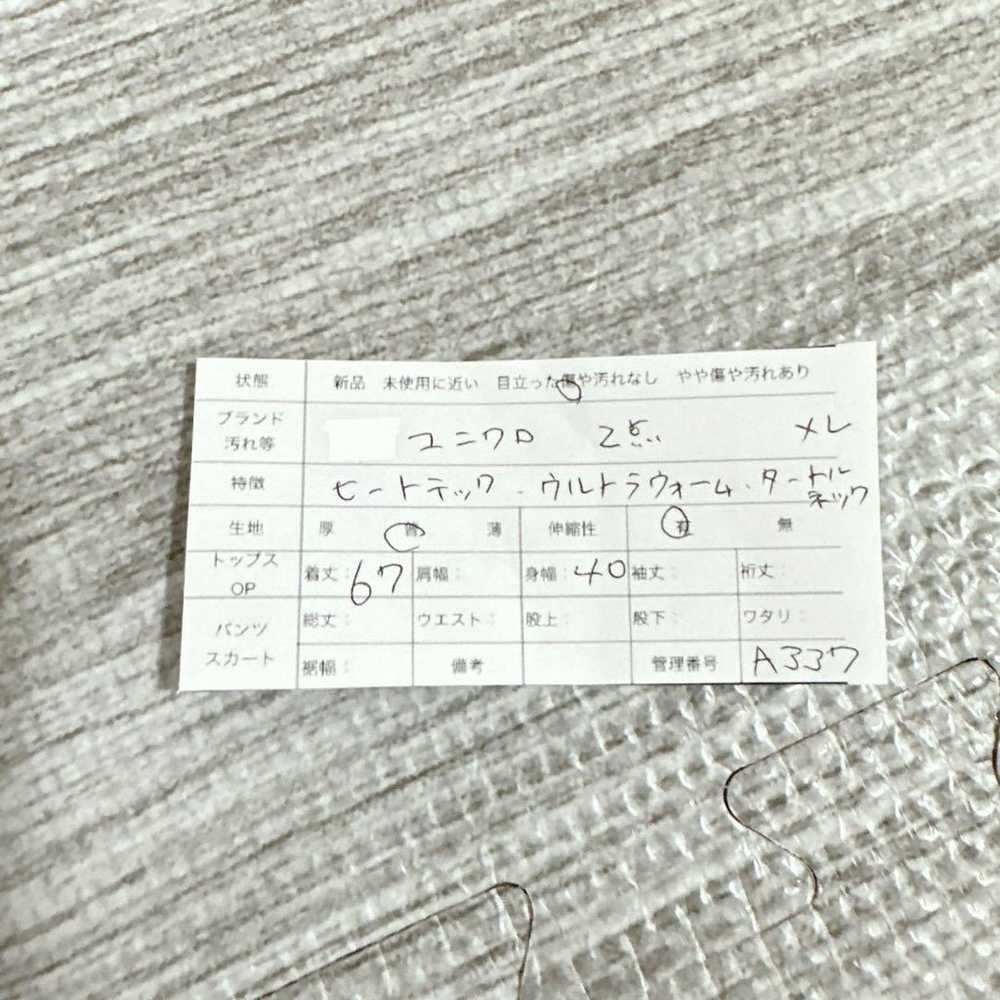 状態 新品 未使用に近い 目立った傷や汚れなし やや傷や汚れあり
ブランド
汚れ等 ユニクロ 2点 メレ
特徴 ヒートテック.ウルトラウォーム.タートル
ネック
生地 厚 普 薄 伸縮性 有 無
トップス
OP 着丈: 67 肩幅: 身幅: 40 袖丈: 裄丈:
パンツ
スカート
総丈: ウエスト: 股上: 股下: ワタリ:
裾幅: 備考 管理番号 A337